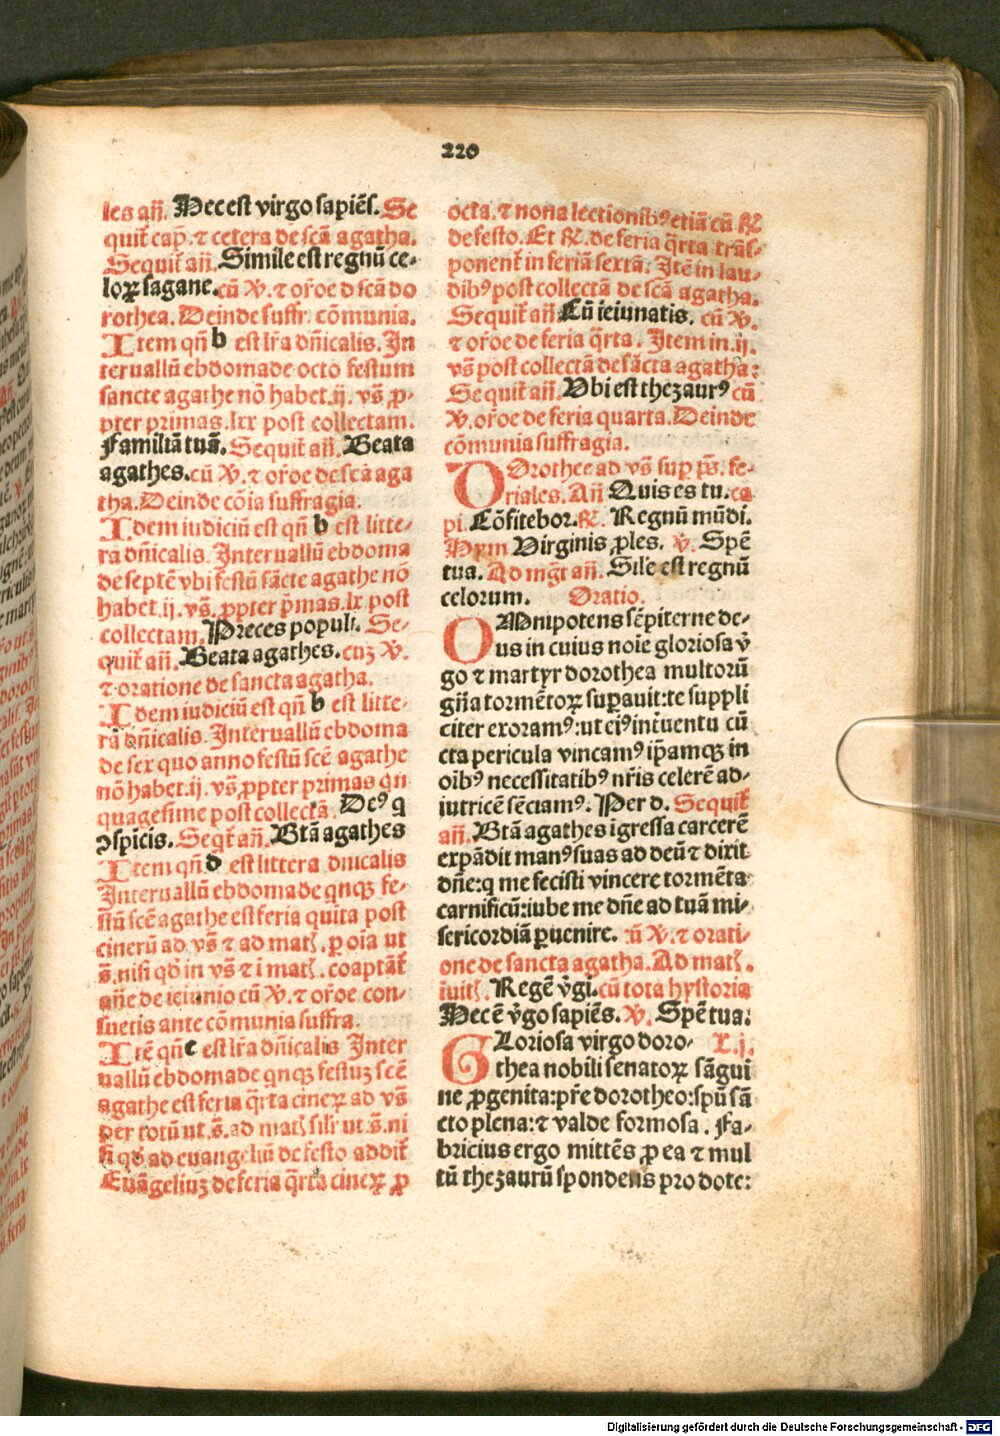 220
les añ. Hec est virgo sapiẽs. Se
quit̃ cap̃. ⁊ cetera de scã agatha.
Sequit̃ añ. Simile est regnũ ce-
loꝝ sagane. cũ ℣. ⁊ or̃oe d scã do
rothea. Deinde suffr. cõmunia.
Item qñ b est lr̃a dñicalis. In
teruallũ ebdomade octo festum
sancte agathe nõ habet .ij. vs̃. ꝓ-
pter primas. lxx post collectam.
Familiã tuã. Sequit̃ añ. Beata
agathes. cũ ℣. ⁊ or̃oe de scã aga
tha. Deinde cõia suffragia.
Idem iudiciũ est qñ b est litte-
ra dñicalis. Interuallũ ebdoma
de septẽ vbi festũ sãcte agathe nõ
habet .ij. vs̃. ꝓpter p̃mas. lx post
collectam. Preces populi. Se-
quit̃ añ. Beata agathes. cuz ℣.
⁊ oratione de sancta agatha.
Idem iudiciũ est qñ b est litte-
ra dñicalis. Interuallũ ebdoma
de sex quo anno festũ scẽ agathe
nõ habet .ij. vs̃. ꝓpter primas qn
quagesime post collectã. Deꝰ q
ↄspicis. Seqt̃ añ. Btã agathes
Item qñ d est littera dnicalis
Interuallũ ebdomade qnqꝫ fe-
stũ scẽ agathe est feria quita post
cinerũ ad vs̃ ⁊ ad mat̃. p oia ut
s̃. nisi qđ in vs̃ ⁊ i mat̃. coaptãt̃
añe de ieiunio cũ ℣. ⁊ or̃oe con-
suetis ante cõmunia suffra.
Itẽ qñ e est lr̃a dñicalis Inter
uallũ ebdomade qnqꝫ festuz scẽ
agathe est feria q̃rta cineꝝ ad vs̃
per totũ ut s̃. ad mat̃ silr̃ ut s̃. ni
si qđ ad euangeliũ de festo addit̃
Euãgeliuz de feria q̃rta cineꝝ ꝓ
octa. ⁊ nona lectionibꝰ etiã cũ ℟
de festo. Et ℟. de feria q̃rta trãs-
ponent̃ in feriã sextã. Itẽ in lau-
dibꝰ post collectã de scã agatha.
Sequit̃ añ Cũ ieiunatis. cũ ℣.
⁊ or̃oe de feria q̃rta. Item in .ij.
vs̃ post collectã de sãcta agatha:
Sequit̃ añ. Vbi est thezaurꝰ cũ
℣. or̃oe de feria quarta. Deinde
cõmunia suffragia.
DOrothee ad vs̃ sup ps̃. fe-
riales. Añ Quis es tu. ca
pi. Cõfitebor. ℟. Regnũ mũdi.
Hym Virginis ꝓles. ℣. Spẽ
tua. Ad mg̃t añ. Sile est regnũ
celorum. Oratio.
OMnipotens sẽpiterne de-
us in cuius noie gloriosa v̾
go ⁊ martyr dorothea multorũ
gñа tormẽtoꝝ suꝑauit: te suppli
citer exoramꝰ: ut eiꝰ int̃uentu cũ
cta pericula vincamꝰ ip̃amqꝫ in
oibꝰ necessitatibꝰ nr̃is celerẽ ad-
iutricẽ sẽciamꝰ. Per d. Sequit̃
añ. Btã agathes ig̃ressa carcerẽ
expãdit manꝰ suas ad deũ ⁊ dixit
dñe: q me fecisti vincere tormẽta
carnificũ: iube me dñe ad tuã mi-
sericordiã ꝑuenire. cũ ℣. ⁊ orati-
one de sancta agatha. Ad mat̃.
ĩuit̃. Regẽ v̾gi. cũ tota hystoria
Hec ẽ v̾go sapiẽs. ℣. Spẽ tua:
GLoriosa virgo doro- L. j.
thea nobili senatoꝝ sãgui
ne ꝓgenita: pr̃e dorotheo: spũ sã
cto plena: ⁊ valde formosa. Fa-
bricius ergo mittẽs ꝓ ea ⁊ mul
tũ thezaurũ spondens pro dote:
Digitalisierung gefördert durch die Deutsche Forschungsgemeinschaft - DFG